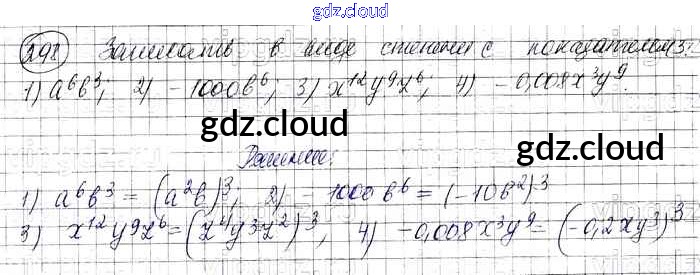 gdz.cloud
298 Записать в виде степени с показателем 3:
1) a⁶b³; 2) - 1000b⁶; 3) x¹²y⁹z⁶; 4) - 0,008x³y⁹.
gdz.cloud gdz.cloud
Решение:
1) a⁶b³ = (a²b)³; 2) - 1000b⁶ = (-10b²)³
3) x¹²y⁹z⁶ = (x⁴y³z²)³, 4) -0,008x³y⁹ = (-0,2xy³)³
gdz.cloud